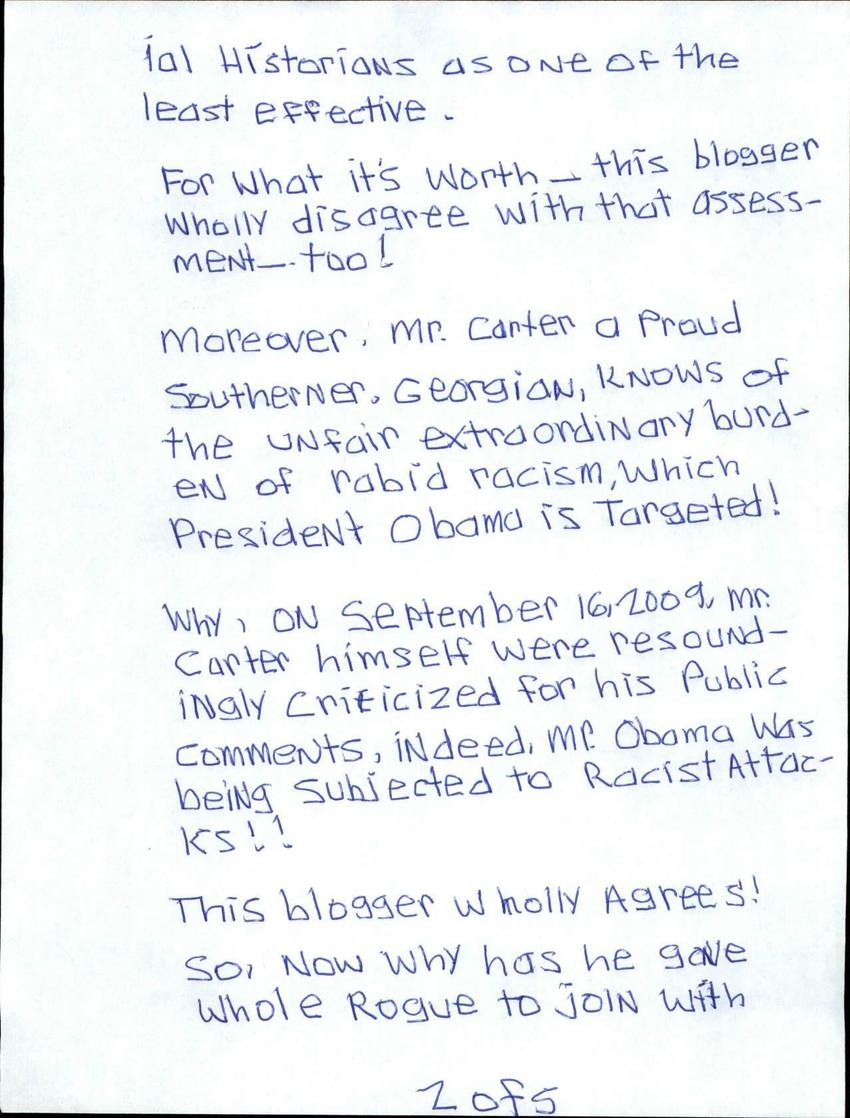 ial Historians as one of the
least effective.
For what it's worth — this blogger
wholly disagree with that assess-
ment —. too!
Moreover, Mr. Carter a Proud
Southerner, Georgian, knows of
the unfair extraordinary burd-
en of rabid racism, which
President Obama is Targeted!
Why, on September 16, 2009, Mr.
Carter himself were resound-
ingly criticized for his Public
comments, indeed, Mr. Obama was
being subjected to Racist Attac-
ks!!
This blogger wholly Agrees!
So, now why has he gave
whole Rogue to join with
2 of 5